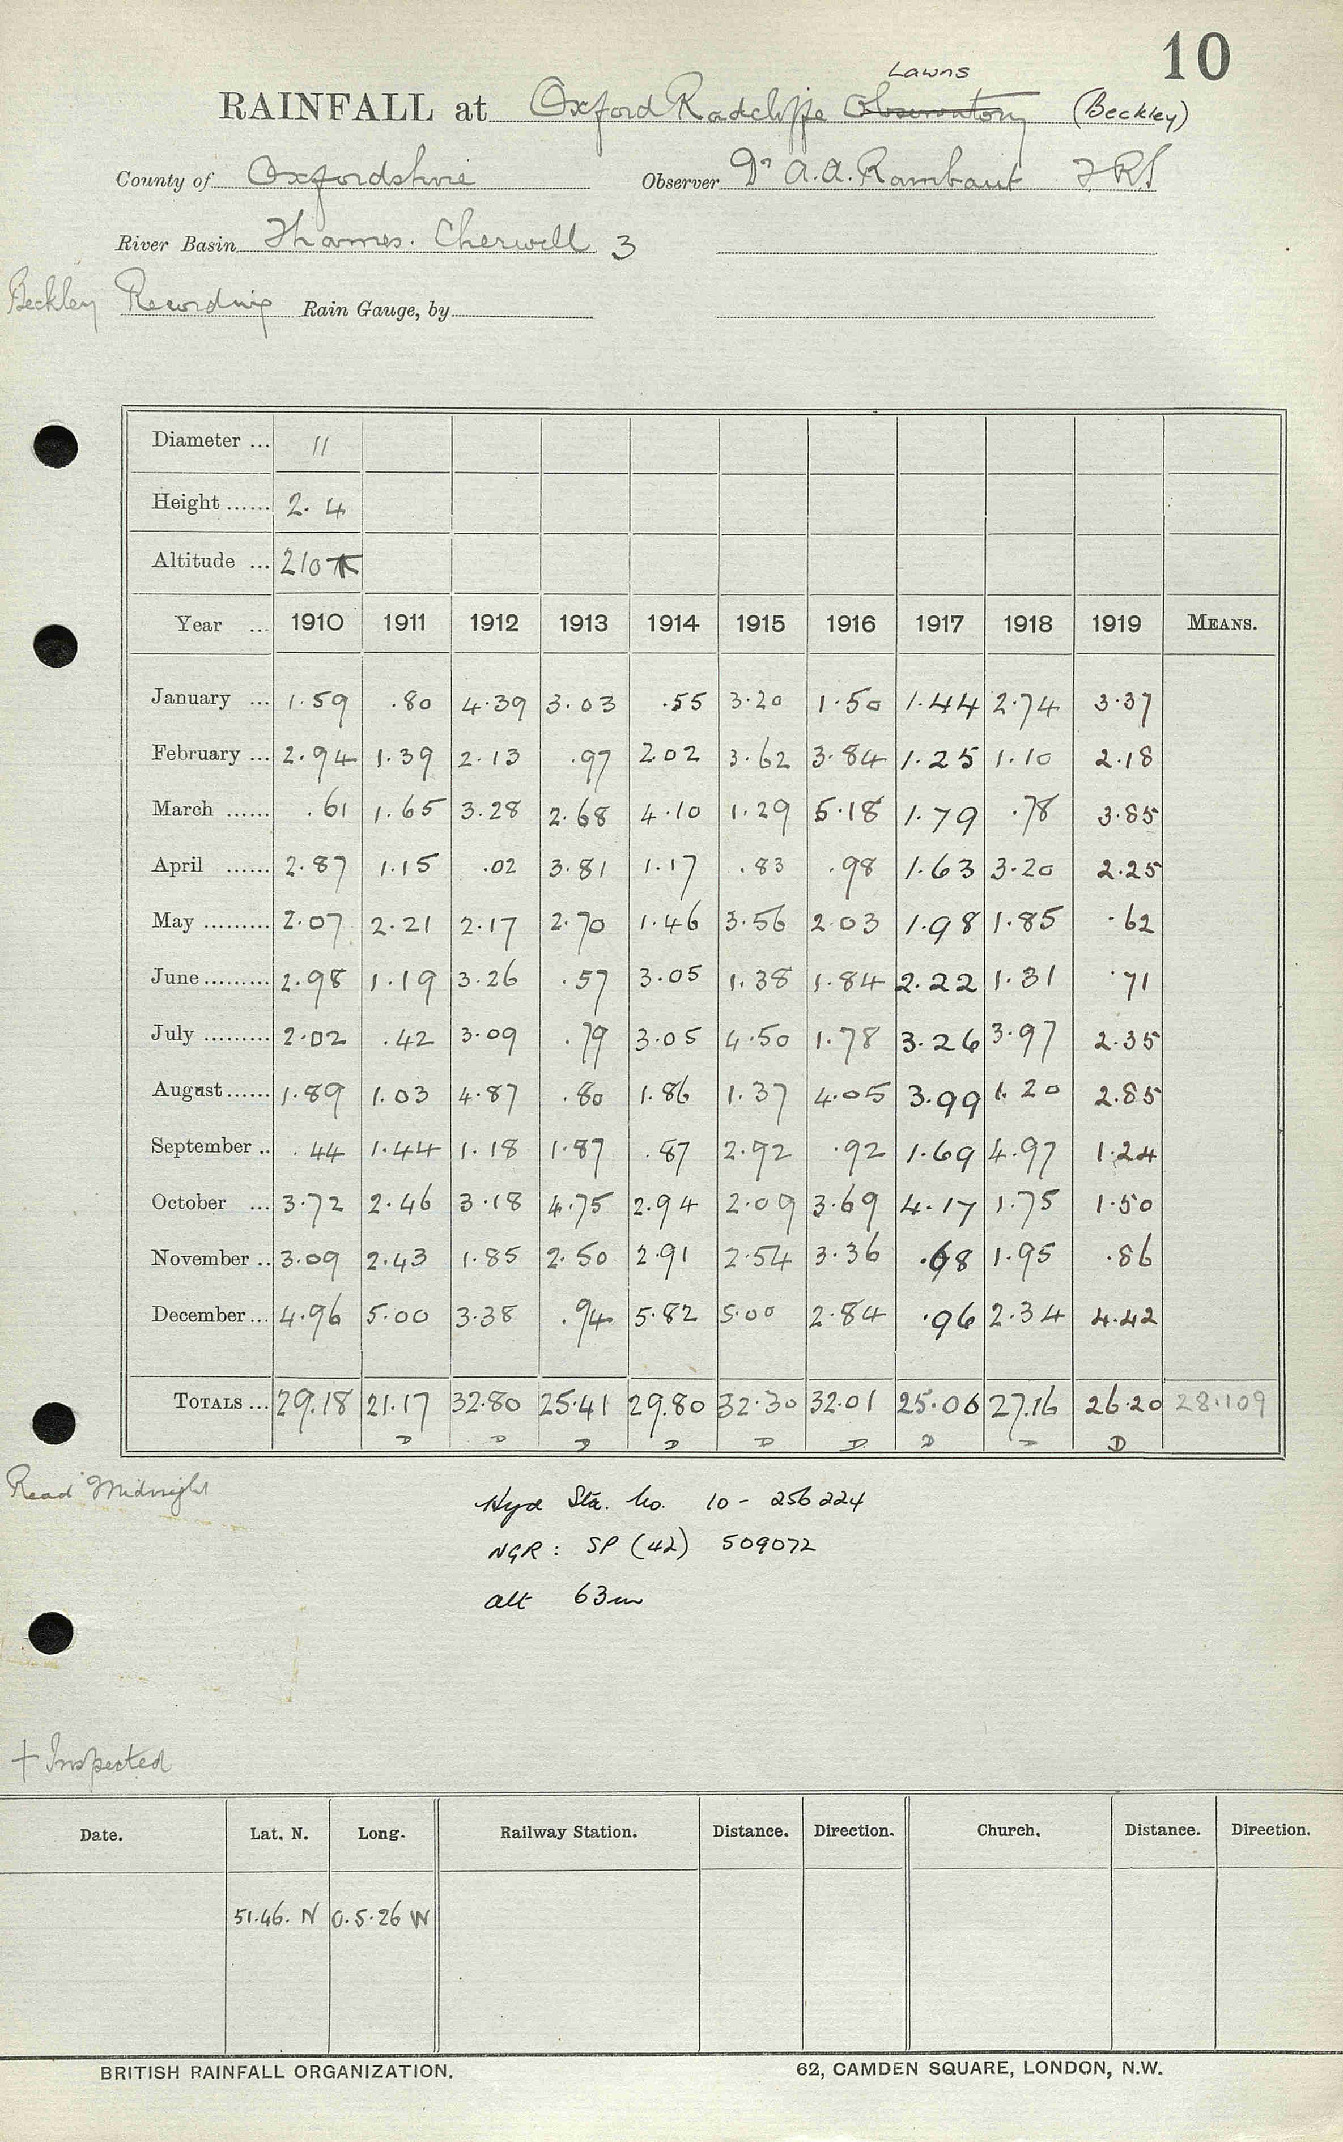 10
Lawns
RAINFALL at Oxford Radcliffe Observatory (Beckley)
County of Oxfordshire Observer Dr A.A. Rambaut FRS
River Basin Thames. Cherwell 3
Beckley Recording Rain Gauge, by
Diameter ... 11
Height ...... 2. 4
Altitude ... 210
Year ... 1910 1911 1912 1913 1914 1915 1916 1917 1918 1919 MEANS.
January ... 1.59 .80 4.39 3.03 .55 3.20 1.50 1.44 2.74 3.37
February ... 2.94 1.39 2.13 .97 2.02 3.62 3.84 1.25 1.10 2.18
March ...... .61 1.65 3.28 2.68 4.10 1.29 5.18 1.79 .78 3.85
April ...... 2.87 1.15 .02 3.81 1.17 .83 .98 1.63 3.20 2.25
May ......... 2.07 2.21 2.17 2.70 1.46 3.56 2.03 1.98 1.85 .62
June ......... 2.98 1.19 3.26 .57 3.05 1.38 1.84 2.22 1.31 .71
July ......... 2.02 .42 3.09 .79 3.05 4.50 1.78 3.26 3.97 2.35
August ...... 1.89 1.03 4.87 .80 1.86 1.37 4.05 3.99 1.20 2.85
September .. .44 1.44 1.18 1.87 .87 2.92 .92 1.69 4.97 1.24
October ... 3.72 2.46 3.18 4.75 2.94 2.09 3.69 4.17 1.75 1.50
November .. 3.09 2.43 1.85 2.50 2.91 2.54 3.36 .68 1.95 .86
December ... 4.96 5.00 3.38 .94 5.82 5.00 2.84 .96 2.34 4.42
TOTALS ... 29.18 21.17 32.80 25.41 29.80 32.30 32.01 25.06 27.16 26.20 28.109
D D D D D D D D D
Read Midnight
Hyd Sta. No. 10 - 256224
NGR : SP (42) 509072
alt 63m
+ Inspected
Date. Lat. N. Long. Railway Station. Distance. Direction. Church. Distance. Direction.
51.46. N 0.5.26 W
BRITISH RAINFALL ORGANIZATION. 62, CAMDEN SQUARE, LONDON, N.W.